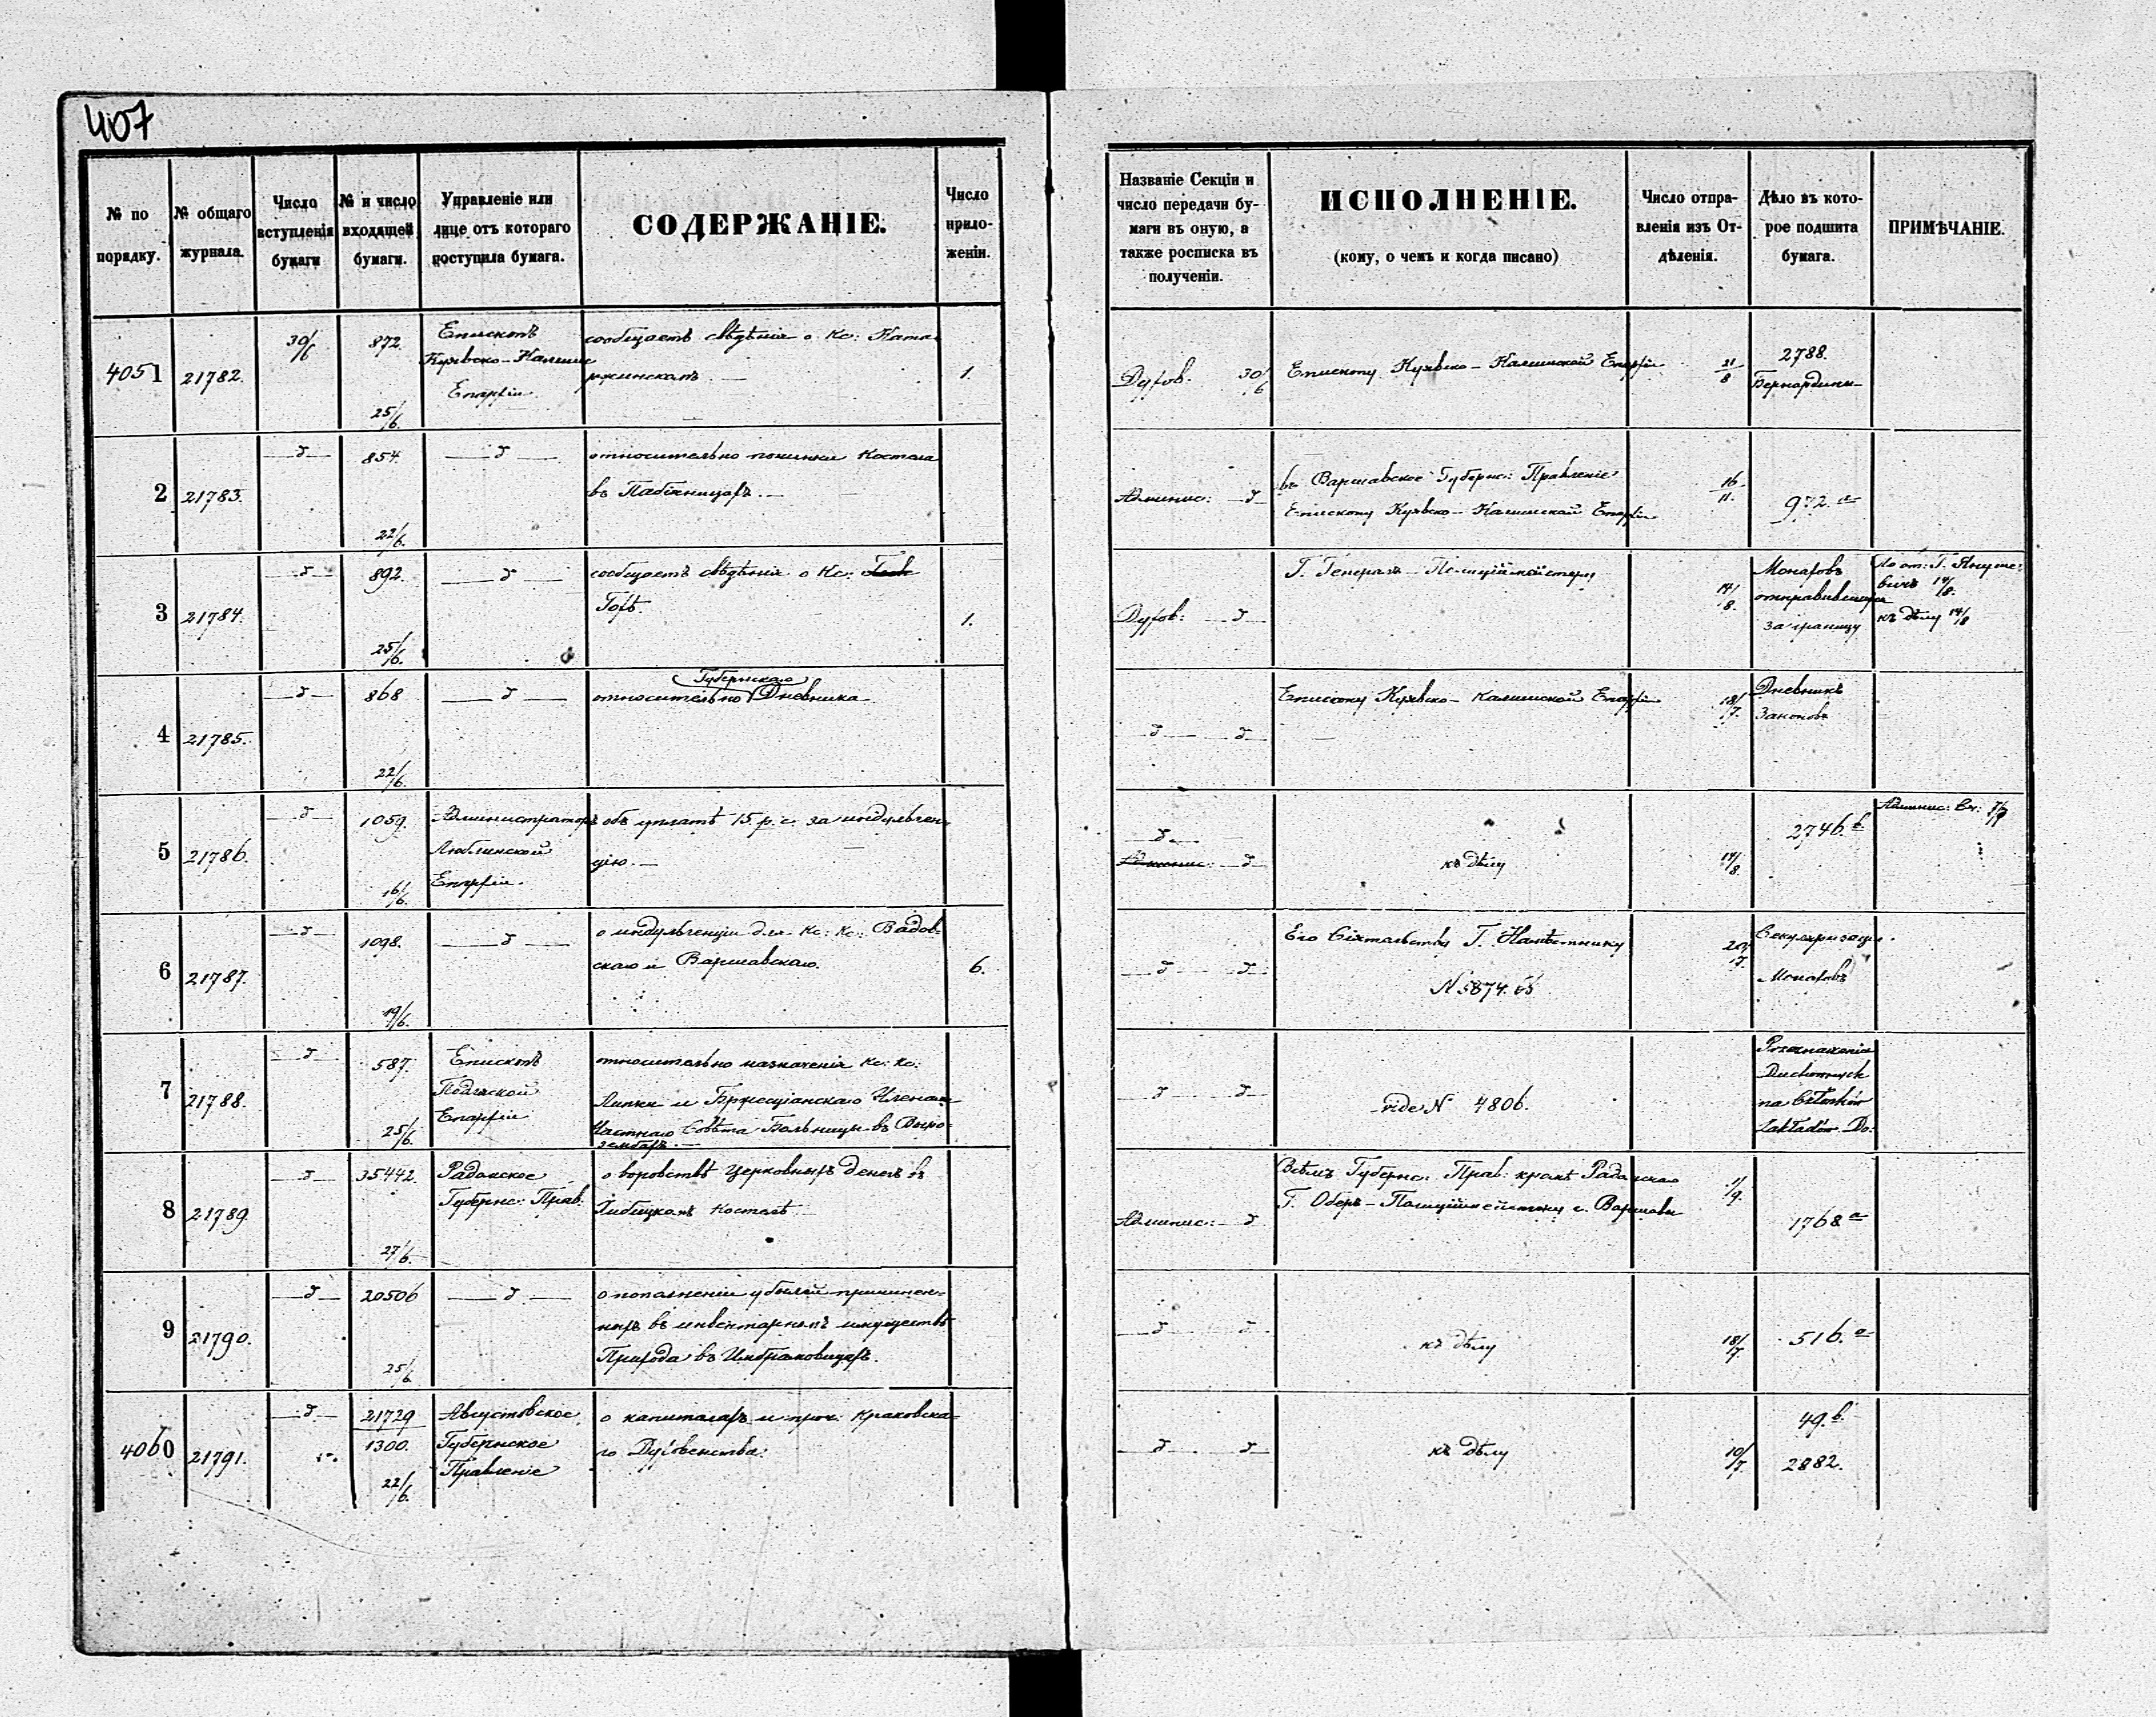 407
№ по порядку.
№ общаго журнала.
Число вступленія бумаги
№ и число входящей бумаги.
Управленіе или лице отъ котораго поступила бумага.
СОДЕРЖАНІЕ.
Число приложеній.
Названіе Секціи и
число передачи бу-
маги въ оную, а
также росписка въ
полученіи.
ИСПОЛНЕНІЕ.
(кому, о чемъ и когда писано)
Число отпра-
вленія изъ От-
дѣленія.
Дѣло въ кото-
рое подшита
бумага.
ПРИМѢЧАНІЕ.
4051 21782. 30/6 872. 25/6.
Епископъ
Куявско-Калишс
Епархіи.
сообщаетъ свѣдѣнія о Кс:
1.
Духов. 30/6
Епископу Куявско-Калишской Епархіи
21/8
2788.
Бернардины
2 21783. 854. 22/6.
относительно починки Костела
въ Пабіяницахъ.
Админис:
въ Варшавское Губернс: Правленіе
Епископу Куявско-Калишской Епархіи
16/11.
972. а
3 21784. 892. 25/6.
сообщаетъ свѣдѣнія о Кс:
Гофѣ.
1.
Духов:
Г. Генералъ-Полиціймейстеру
14/8.
Монаховъ
отправившихся
за границу
къ дѣлу 14/8
4 21785. 868 22/6.
Губернскаго
относительно Дневника
Епископу Куявско-Калишской Епархіи
18/7.
Дневникъ
Законовъ
5 21786. 1059. 16/6.
Администраторъ
Люблинской
Епархіи.
объ уплатѣ 15. р. с. за индульген-
цію.
Админис:
къ дѣлу
14/8.
2746. b
6 21787. 1098. 19/6.
о индульгенціи для Кс: Кс: Вадов-
скаго и Варшавскаго.
6.
Его Сіятельству Г. Намѣстнику
N 5874.
20/7.
Секуляризація
Монаховъ
7 21788. 587. 25/6.
Епископъ
Подляской
Епархіи
относительно назначенія Кс: Кс:
Липки и Бржесціанскаго Членами
Частнаго Совѣта Больницы въ
vide N 4806.
Przeznaczenia
Duchownych
na Członków
Zakładów Do:
8 21789. 35442. 27/6.
Радомское
Губернс: Прав:
о воровствѣ церковныхъ денегъ въ
Костелѣ
Админис:
Всѣмъ Губернс: Прав: кромѣ Радомскаго
Г. Оберъ-Полиціймейстеру г. Варшавы
1/9.
1768 а
9 21790. 20506 25/6
о пополненіи убылей причинен-
ныхъ въ инвентарномъ имуществѣ
Прихода въ Имбрамовицахъ.
къ дѣлу
18/7.
516. а
4060 21791. 21729
1300. 22/6.
Августовское
Губернское
Правленіе
о капиталахъ и проч: Краковска-
го Духовенства.
къ дѣлу
10/7.
49. b.
2882.